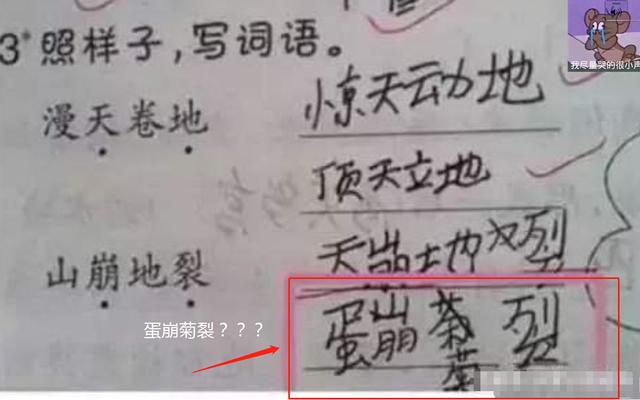 3*照样子,写词语。
我尽量哭的很小声
漫天卷地
惊天动地
顶天立地
山崩地裂
天崩地裂
蛋崩菊裂???
蛋崩菊裂